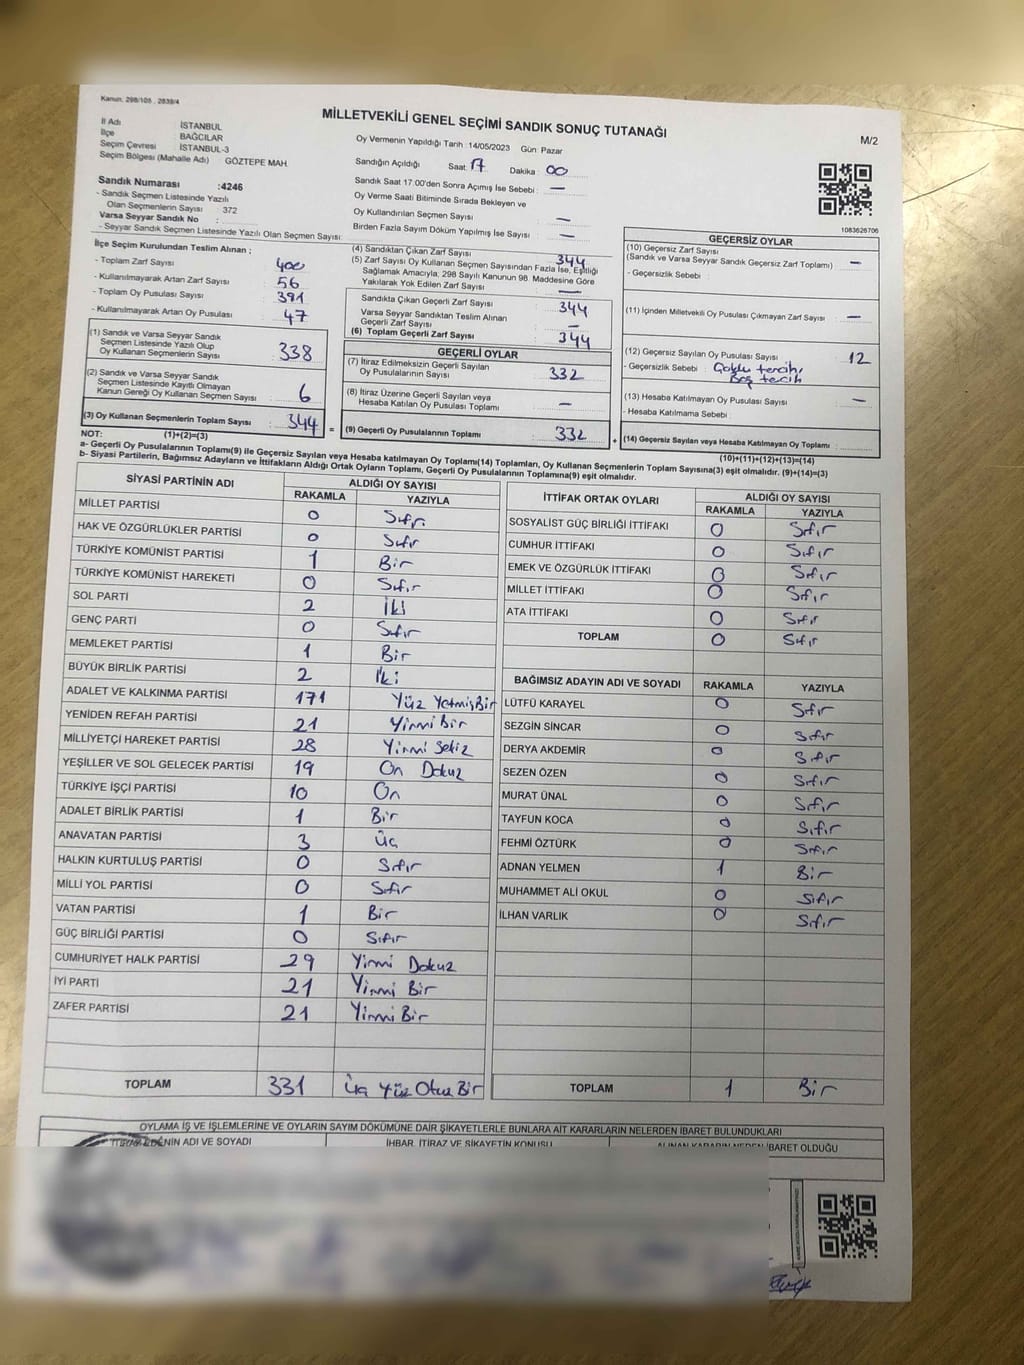 Kanun: 298/105 , 2839/4
MİLLETVEKİLİ GENEL SEÇİMİ SANDIK SONUÇ TUTANAĞI
M/2
İl Adı : İSTANBUL
İlçe : BAĞCILAR
Seçim Çevresi : İSTANBUL-3
Seçim Bölgesi (Mahalle Adı) : GÖZTEPE MAH.
Sandık Numarası :4246
- Sandık Seçmen Listesinde Yazılı
Olan Seçmenlerin Sayısı : 372
Varsa Seyyar Sandık No :
- Seyyar Sandık Seçmen Listesinde Yazılı Olan Seçmen Sayısı:
Oy Vermenin Yapıldığı Tarih : 14/05/2023 Gün: Pazar
Sandığın Açıldığı Saat: 17 Dakika : 00
Sandık Saat 17.00'den Sonra Açımış İse Sebebi : —
Oy Verme Saati Bitiminde Sırada Bekleyen ve
Oy Kullandırılan Seçmen Sayısı —
Birden Fazla Sayım Döküm Yapılmış İse Sayısı : —
1083626706
İlçe Seçim Kurulundan Teslim Alınan ;
- Toplam Zarf Sayısı : 400
- Kullanılmayarak Artan Zarf Sayısı : 56
- Toplam Oy Pusulası Sayısı : 391
- Kullanılmayarak Artan Oy Pusulası : 47
(1) Sandık ve Varsa Seyyar Sandık
Seçmen Listesinde Yazılı Olup
Oy Kullanan Seçmenlerin Sayısı : 338
(2) Sandık ve Varsa Seyyar Sandık
Seçmen Listesinde Kayıtlı Olmayan
Kanun Gereği Oy Kullanan Seçmen Sayısı : 6
(3) Oy Kullanan Seçmenlerin Toplam Sayısı : 344
(4) Sandıktan Çıkan Zarf Sayısı : 344
(5) Zarf Sayısı Oy Kullanan Seçmen Sayısından Fazla İse, Eşitliği
Sağlamak Amacıyla, 298 Sayılı Kanunun 98. Maddesine Göre
Yakılarak Yok Edilen Zarf Sayısı : —
Sandıkta Çıkan Geçerli Zarf Sayısı : 344
Varsa Seyyar Sandıktan Teslim Alınan
Geçerli Zarf Sayısı : —
(6) Toplam Geçerli Zarf Sayısı : 344
GEÇERLİ OYLAR
(7) İtiraz Edilmeksizin Geçerli Sayılan
Oy Pusulalarının Sayısı : 332
(8) İtiraz Üzerine Geçerli Sayılan veya
Hesaba Katılan Oy Pusulası Toplamı : —
= (9) Geçerli Oy Pusulalarının Toplamı : 332
GEÇERSİZ OYLAR
(10) Geçersiz Zarf Sayısı
(Sandık ve Varsa Seyyar Sandık Geçersiz Zarf Toplamı) : —
- Geçersizlik Sebebi :
(11) İçinden Milletvekili Oy Pusulası Çıkmayan Zarf Sayısı : —
(12) Geçersiz Sayılan Oy Pusulası Sayısı : 12
- Geçersizlik Sebebi : Çoklu tercih,
Boş tercih
(13) Hesaba Katılmayan Oy Pusulası Sayısı : —
- Hesaba Katılmama Sebebi :
+ (14) Geçersiz Sayılan veya Hesaba Katılmayan Oy Toplamı :
NOT: (1)+(2)=(3)
(10)+(11)+(12)+(13)=(14)
a- Geçerli Oy Pusulalarının Toplamı(9) ile Geçersiz Sayılan veya Hesaba Katılmayan Oy Toplamı(14) Toplamları, Oy Kullanan Seçmenlerin Toplam Sayısına(3) eşit olmalıdır. (9)+(14)=(3)
b- Siyasi Partilerin, Bağımsız Adayların ve İttifakların Aldığı Ortak Oyların Toplamı, Geçerli Oy Pusulalarının Toplamına(9) eşit olmalıdır.
SİYASİ PARTİNİN ADI ALDIĞI OY SAYISI
RAKAMLA YAZIYLA
MİLLET PARTİSİ 0 Sıfır
HAK VE ÖZGÜRLÜKLER PARTİSİ 0 Sıfır
TÜRKİYE KOMÜNİST PARTİSİ 1 Bir
TÜRKİYE KOMÜNİST HAREKETİ 0 Sıfır
SOL PARTİ 2 İki
GENÇ PARTİ 0 Sıfır
MEMLEKET PARTİSİ 1 Bir
BÜYÜK BİRLİK PARTİSİ 2 İki
ADALET VE KALKINMA PARTİSİ 171 Yüz YetmişBir
YENİDEN REFAH PARTİSİ 21 Yirmi Bir
MİLLİYETÇİ HAREKET PARTİSİ 28 Yirmi Sekiz
YEŞİLLER VE SOL GELECEK PARTİSİ 19 On Dokuz
TÜRKİYE İŞÇİ PARTİSİ 10 On
ADALET BİRLİK PARTİSİ 1 Bir
ANAVATAN PARTİSİ 3 Üç
HALKIN KURTULUŞ PARTİSİ 0 Sıfır
MİLLİ YOL PARTİSİ 0 Sıfır
VATAN PARTİSİ 1 Bir
GÜÇ BİRLİĞİ PARTİSİ 0 Sıfır
CUMHURİYET HALK PARTİSİ 29 Yirmi Dokuz
İYİ PARTİ 21 Yirmi Bir
ZAFER PARTİSİ 21 Yirmi Bir
TOPLAM 331 Üç Yüz Otuz Bir
İTTİFAK ORTAK OYLARI ALDIĞI OY SAYISI
RAKAMLA YAZIYLA
SOSYALİST GÜÇ BİRLİĞİ İTTİFAKI 0 Sıfır
CUMHUR İTTİFAKI 0 Sıfır
EMEK VE ÖZGÜRLÜK İTTİFAKI 0 Sıfır
MİLLET İTTİFAKI 0 Sıfır
ATA İTTİFAKI 0 Sıfır
TOPLAM 0 Sıfır
BAĞIMSIZ ADAYIN ADI VE SOYADI RAKAMLA YAZIYLA
LÜTFÜ KARAYEL 0 Sıfır
SEZGİN SİNCAR 0 Sıfır
DERYA AKDEMİR 0 Sıfır
SEZEN ÖZEN 0 Sıfır
MURAT ÜNAL 0 Sıfır
TAYFUN KOCA 0 Sıfır
FEHMİ ÖZTÜRK 0 Sıfır
ADNAN YELMEN 1 Bir
MUHAMMET ALİ OKUL 0 Sıfır
İLHAN VARLIK 0 Sıfır
TOPLAM 1 Bir
OYLAMA İŞ VE İŞLEMLERİNE VE OYLARIN SAYIM DÖKÜMÜNE DAİR ŞİKAYETLERLE BUNLARA AİT KARARLARIN NELERDEN İBARET BULUNDUKLARI
İTİRAZ EDENİN ADI VE SOYADI İHBAR, İTİRAZ VE ŞİKAYETİN KONUSU ALINAN KARARIN NEDEN İBARET OLDUĞU